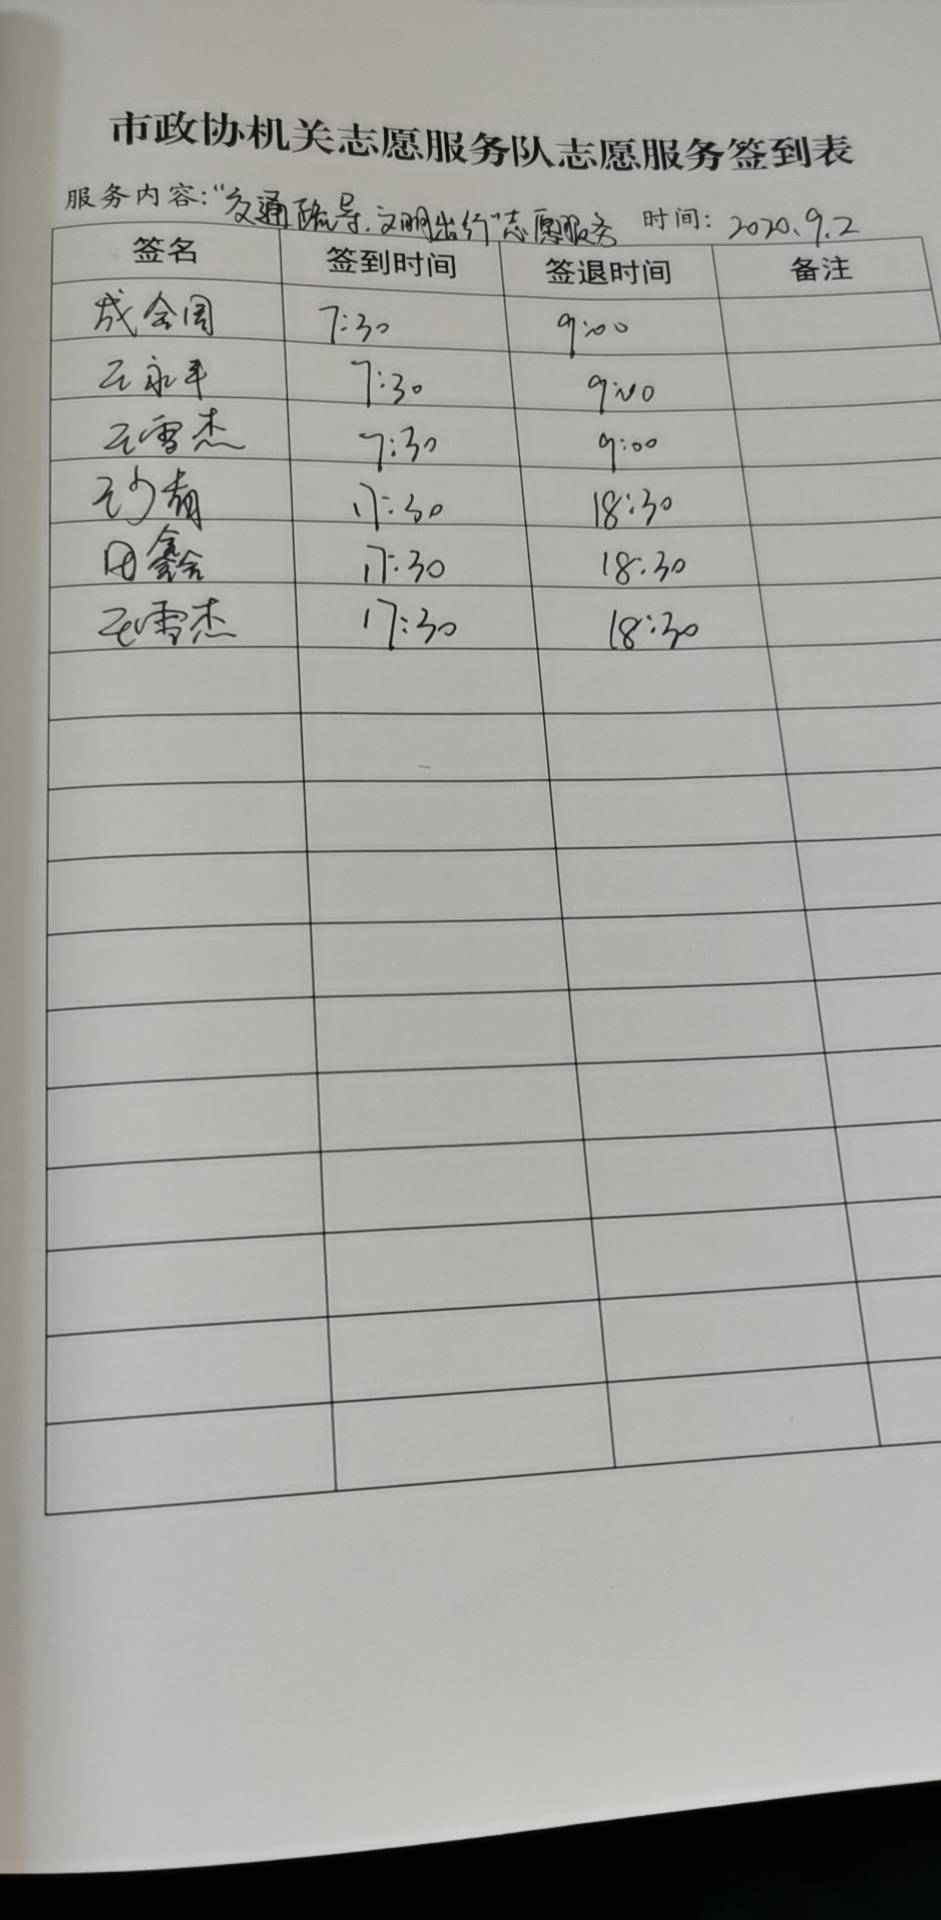 市政协机关志愿服务队志愿服务签到表
服务内容:“交通疏导、文明出行”志愿服务 时间: 2020.9.2
签名 签到时间 签退时间 备注
成会周 7:30 9:00
王永平 7:30 9:00
王雪杰 7:30 9:00
王少青 17:30 18:30
田鑫 17:30 18:30
王雪杰 17:30 18:30